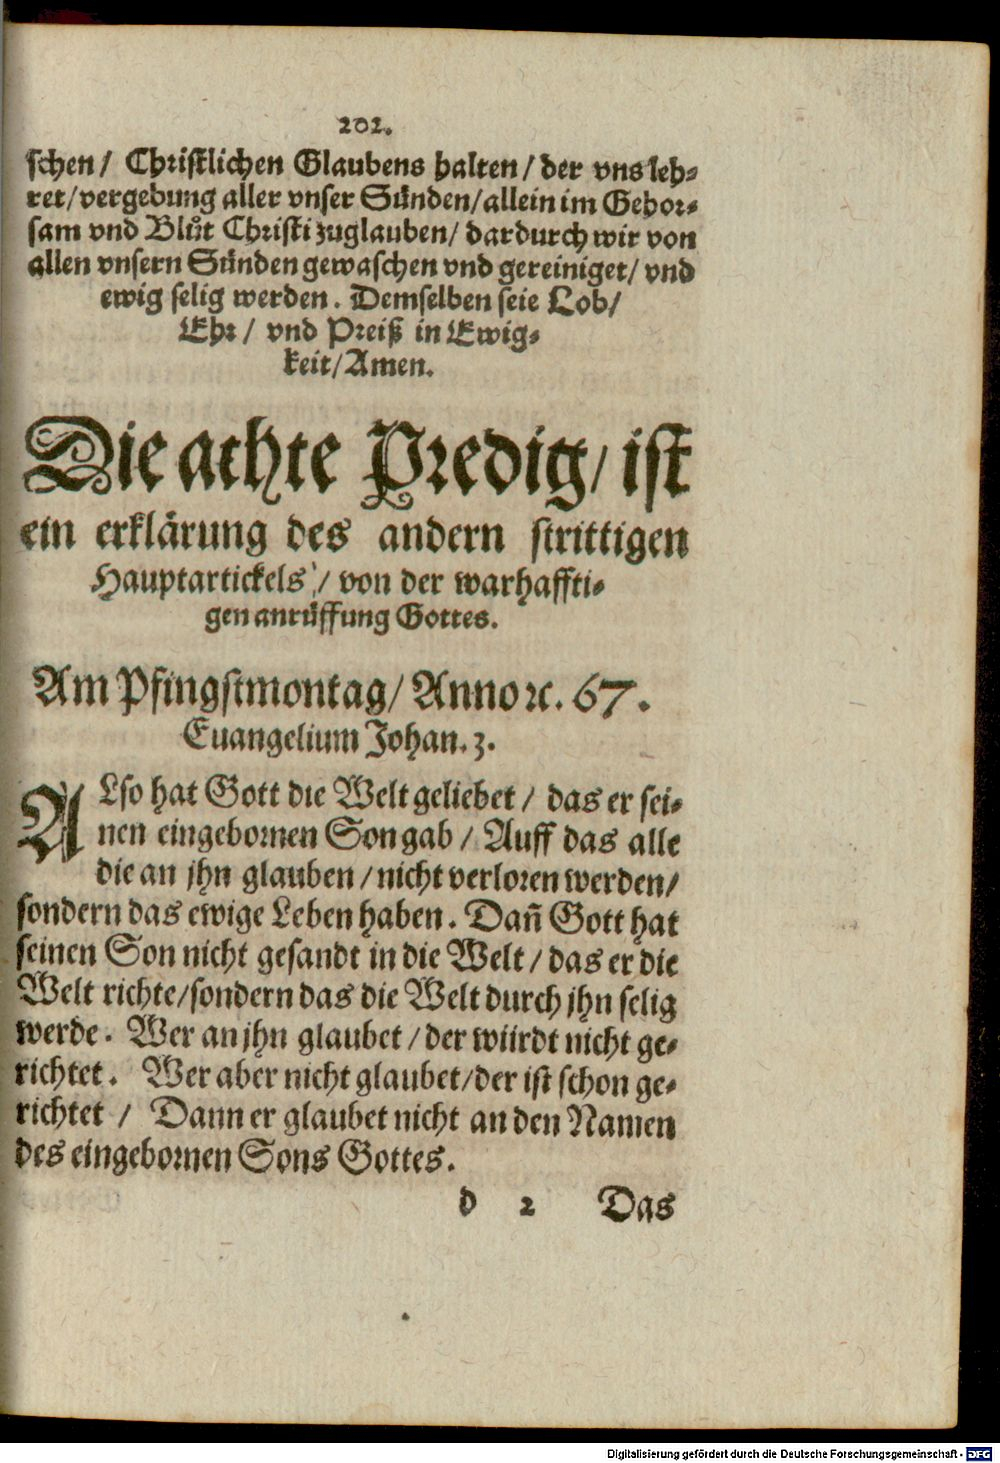 202.
schen/ Christlichen Glaubens halten/ der vns leh-
ret/vergebung aller vnser Sünden/allein im Gehor-
sam vnd Blůt Christi zuglauben/ dardurch wir von
allen vnsern Sünden gewaschen vnd gereiniget/ vnd
ewig selig werden. Demselben seie Lob/
Ehr/ vnd Preiß in Ewig-
keit/Amen.
Die achte Predig/ ist
ein erklärung des andern strittigen
Hauptartickels/ von der warhaffti-
gen anrůffung Gottes.
Am Pfingstmontag/ Anno ꝛc. 67.
Euangelium Johan. 3.
ALso hat Gott die Welt geliebet/ das er sei-
nen eingebornen Son gab/ Auff das alle
die an jhn glauben/nicht verloren werden/
sondern das ewige Leben haben. Dañ Gott hat
seinen Son nicht gesandt in die Welt/ das er die
Welt richte/sondern das die Welt durch jhn selig
werde. Wer an jhn glaubet/der würdt nicht ge-
richtet. Wer aber nicht glaubet/der ist schon ge-
richtet/ Dann er glaubet nicht an den Namen
des eingebornen Sons Gottes.
d 2 Das
Digitalisierung gefördert durch die Deutsche Forschungsgemeinschaft - DFG